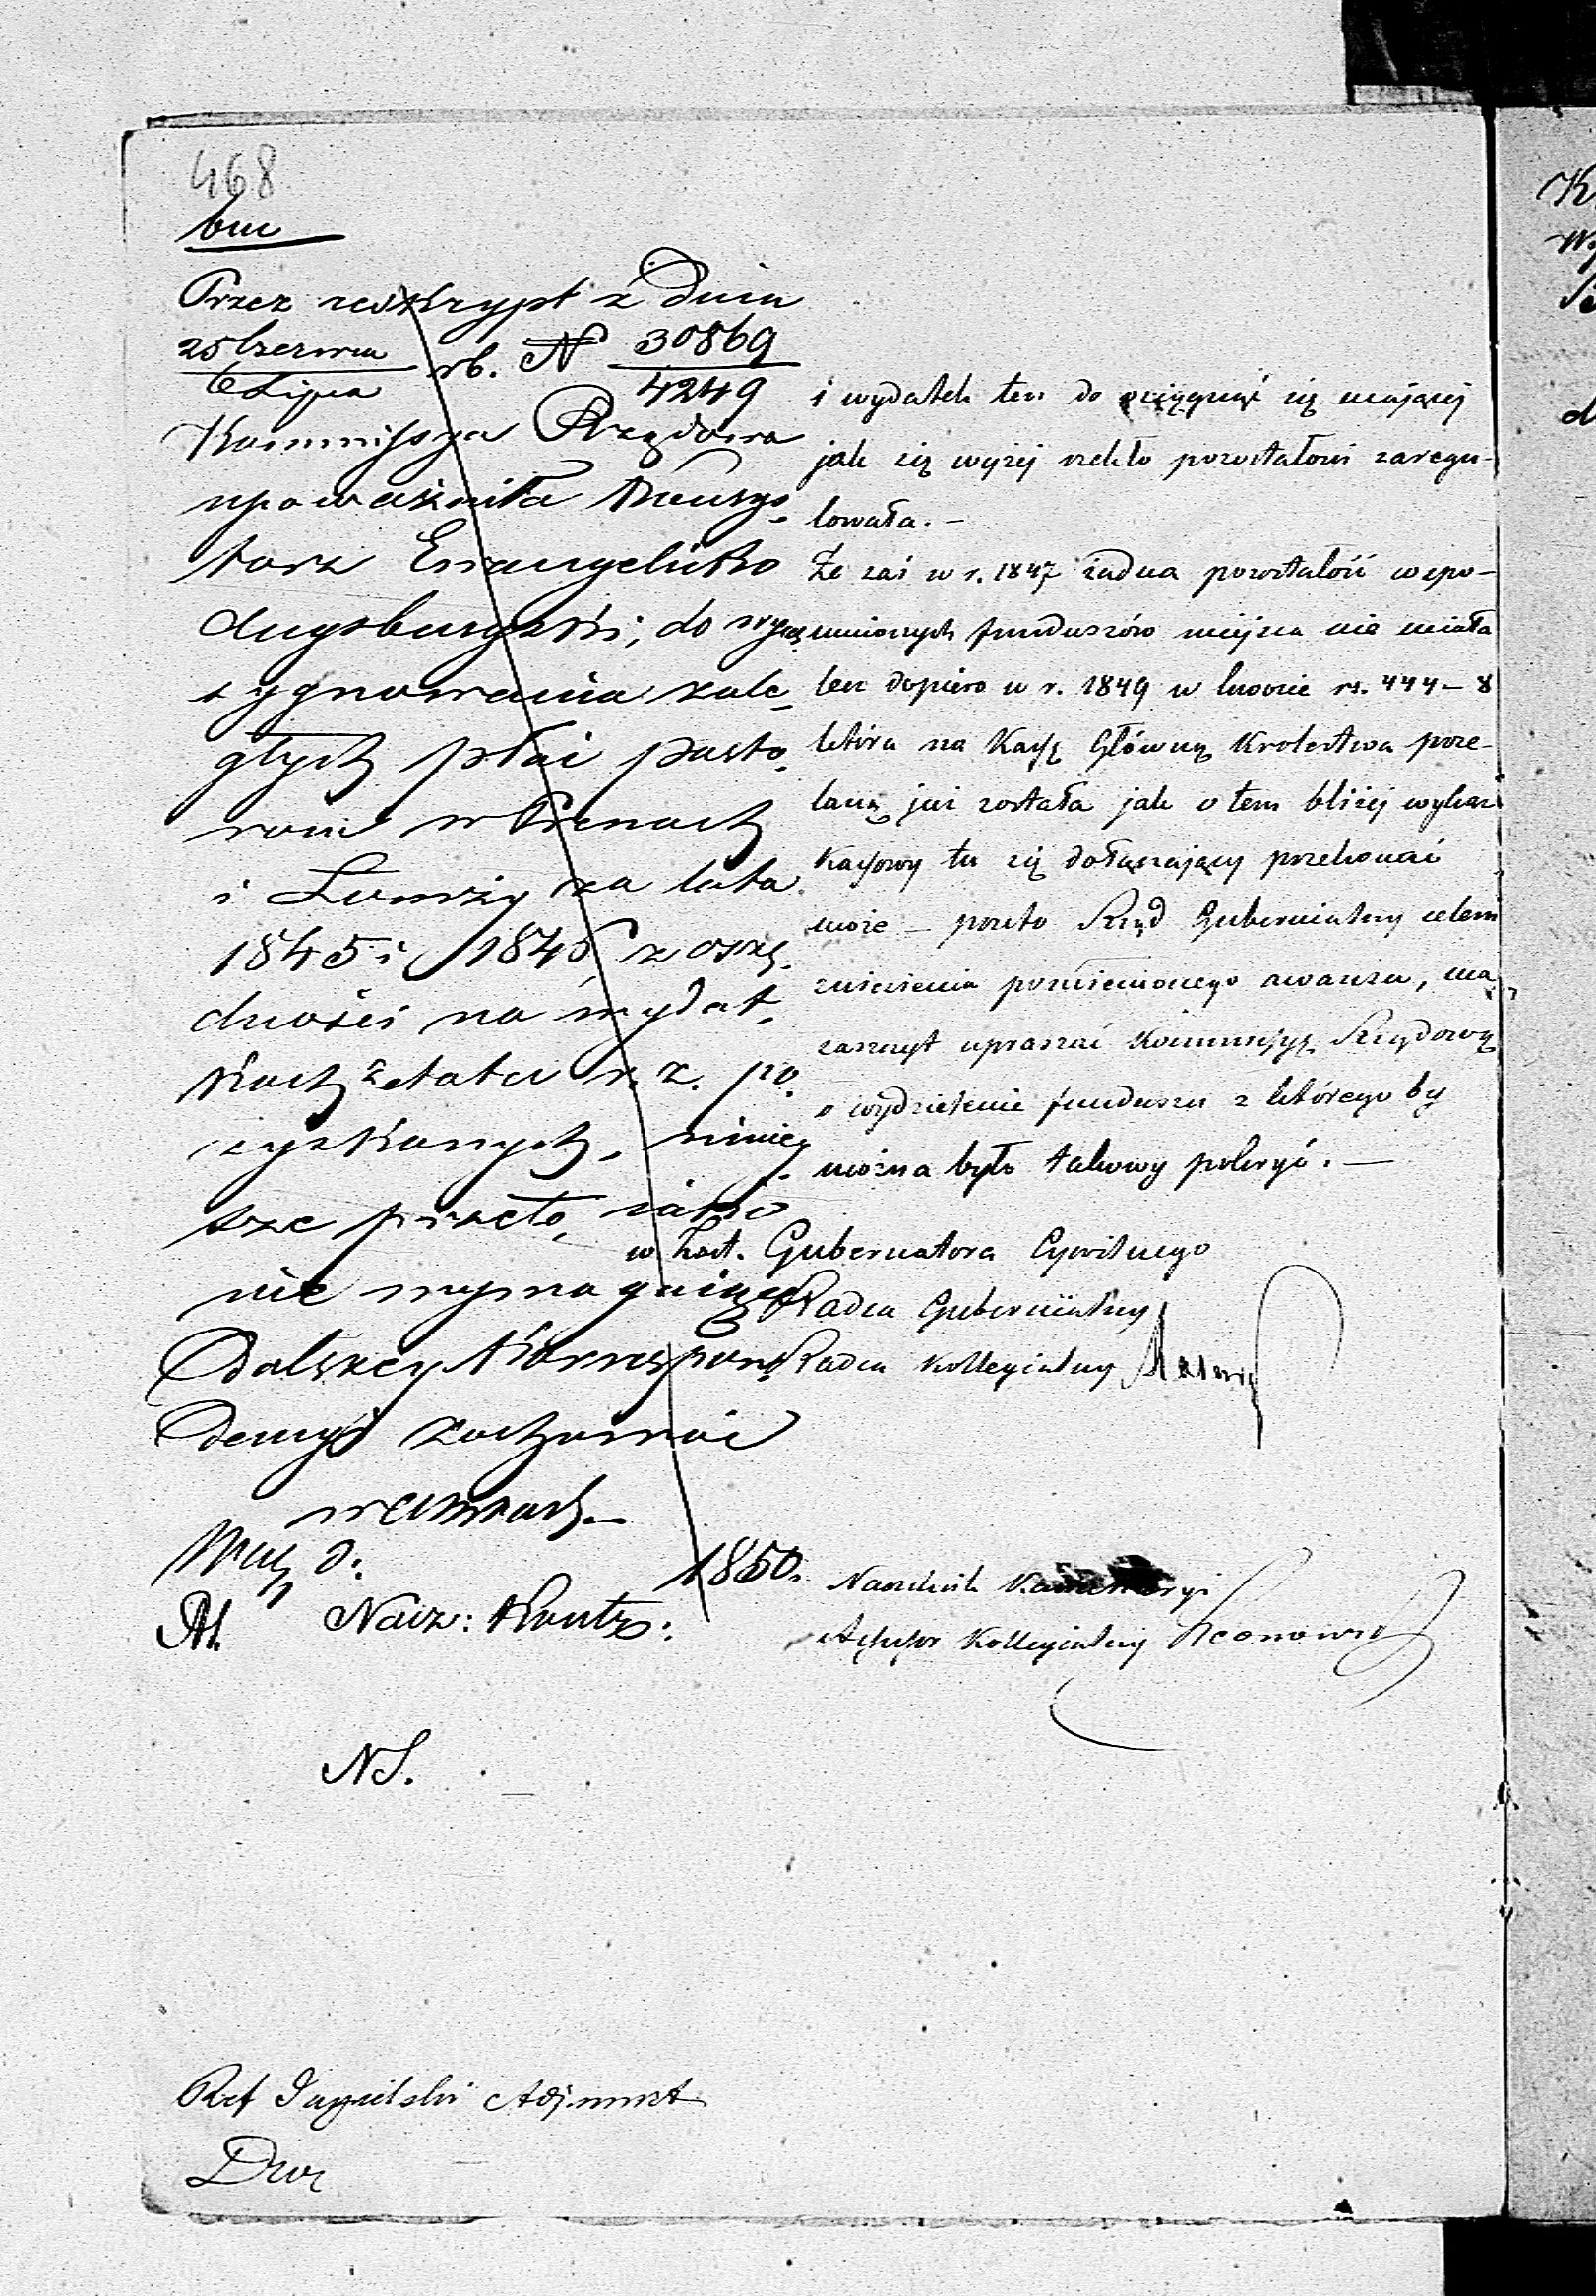 468
bm
Przez reskrypt z Dnia
25 Czerwca / 6 Lipca rb. N 30869 / 4249
Kommissya Rządowa
upoważniła Konsys-
torz Ewangelicko
Augsburgski, do wyas-
sygnowania zale-
głych płac pasto-
rom w Prenach
i Łomży za lata
1845 i 1846 z oszczę-
dności na wydat-
kach z etatu r. z. po-
zyskanych, niniej-
sze przeto, iako
nie wymagaiące
Dalszey Korrespon-
dencyi zachować
w aktach.
Wa d. 1850.
Naczel: Kontr:
NS.
Ref Jagielski Adjunkt
i wydatek ten do osiągnąć się mającej
jak się wyżej rzekło pozostałości zaregu-
lowała. —
Że zaś w r. 1847 żadna pozostałość wspo-
mnionych funduszów miejsca nie miała
lecz dopiero w r. 1849 w kwocie rs. 444 - 8
która na Kassę Główną Krolestwa prze-
laną już została jak o tem bliżej wykaz
Kassowy tu się dołączający przekonać
może — przeto Rząd Gubernialny celem
ziszczenia pomienionego awansu, ma
zaszczyt upraszać Kommissyę Rządową
o wydzielenie funduszu z którego by
można było takowy pokryć. —
w Zast. Gubernatora Cywilnego
Radca Gubernialny
Radca Kollegialny
Naczelnik Kancellaryi
Assessor Kollegialny